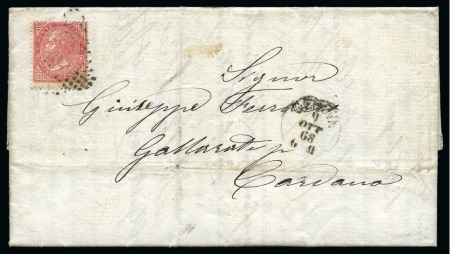 Signor
Giuseppe Ferrari
Gallarate p
Cardano
9
OTT
68